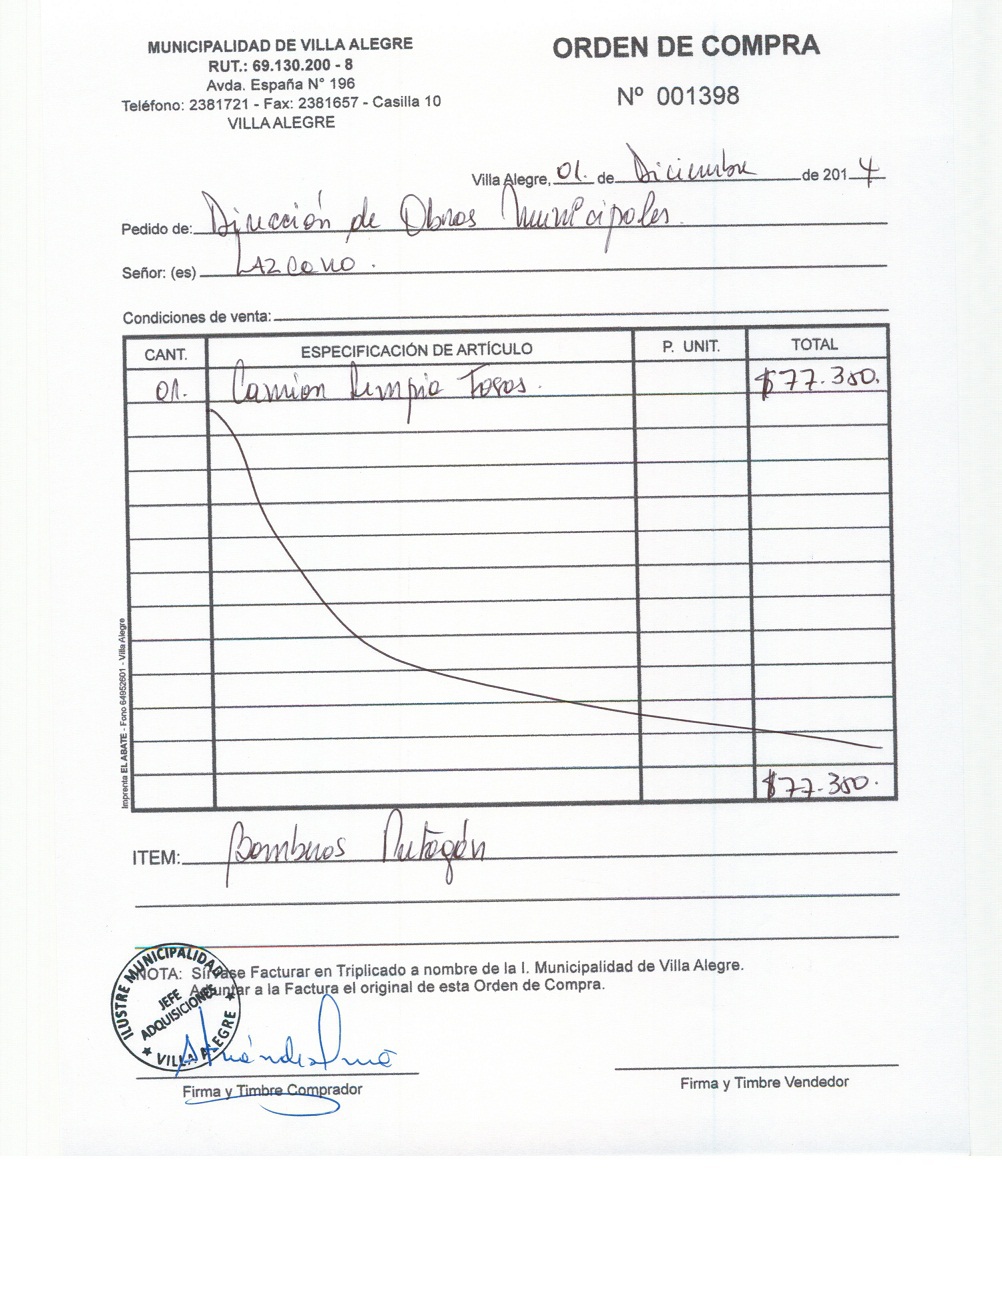 MUNICIPALIDAD DE VILLA ALEGRE
RUT.: 69.130.200 - 8
Avda. España N° 196
Teléfono: 2381721 - Fax: 2381657 - Casilla 10
VILLA ALEGRE
ORDEN DE COMPRA
Nº 001398
Villa Alegre, 01. de Diciembre de 2014
Pedido de: Dirección de Obras Municipales.
Señor: (es) Lazcano.
Condiciones de venta:
CANT. ESPECIFICACIÓN DE ARTÍCULO P. UNIT. TOTAL
01. Camion limpia Fosas. $77.350.
$77.350.
Imprenta EL ABATE - Fono 64952601 - Villa Alegre
ITEM: Bomberos Putagán
NOTA: Sírvase Facturar en Triplicado a nombre de la I. Municipalidad de Villa Alegre.
Adjuntar a la Factura el original de esta Orden de Compra.
ILUSTRE MUNICIPALIDAD
JEFE
ADQUISICIONES
★ VILLA ALEGRE ★
Firma y Timbre Comprador
Firma y Timbre Vendedor